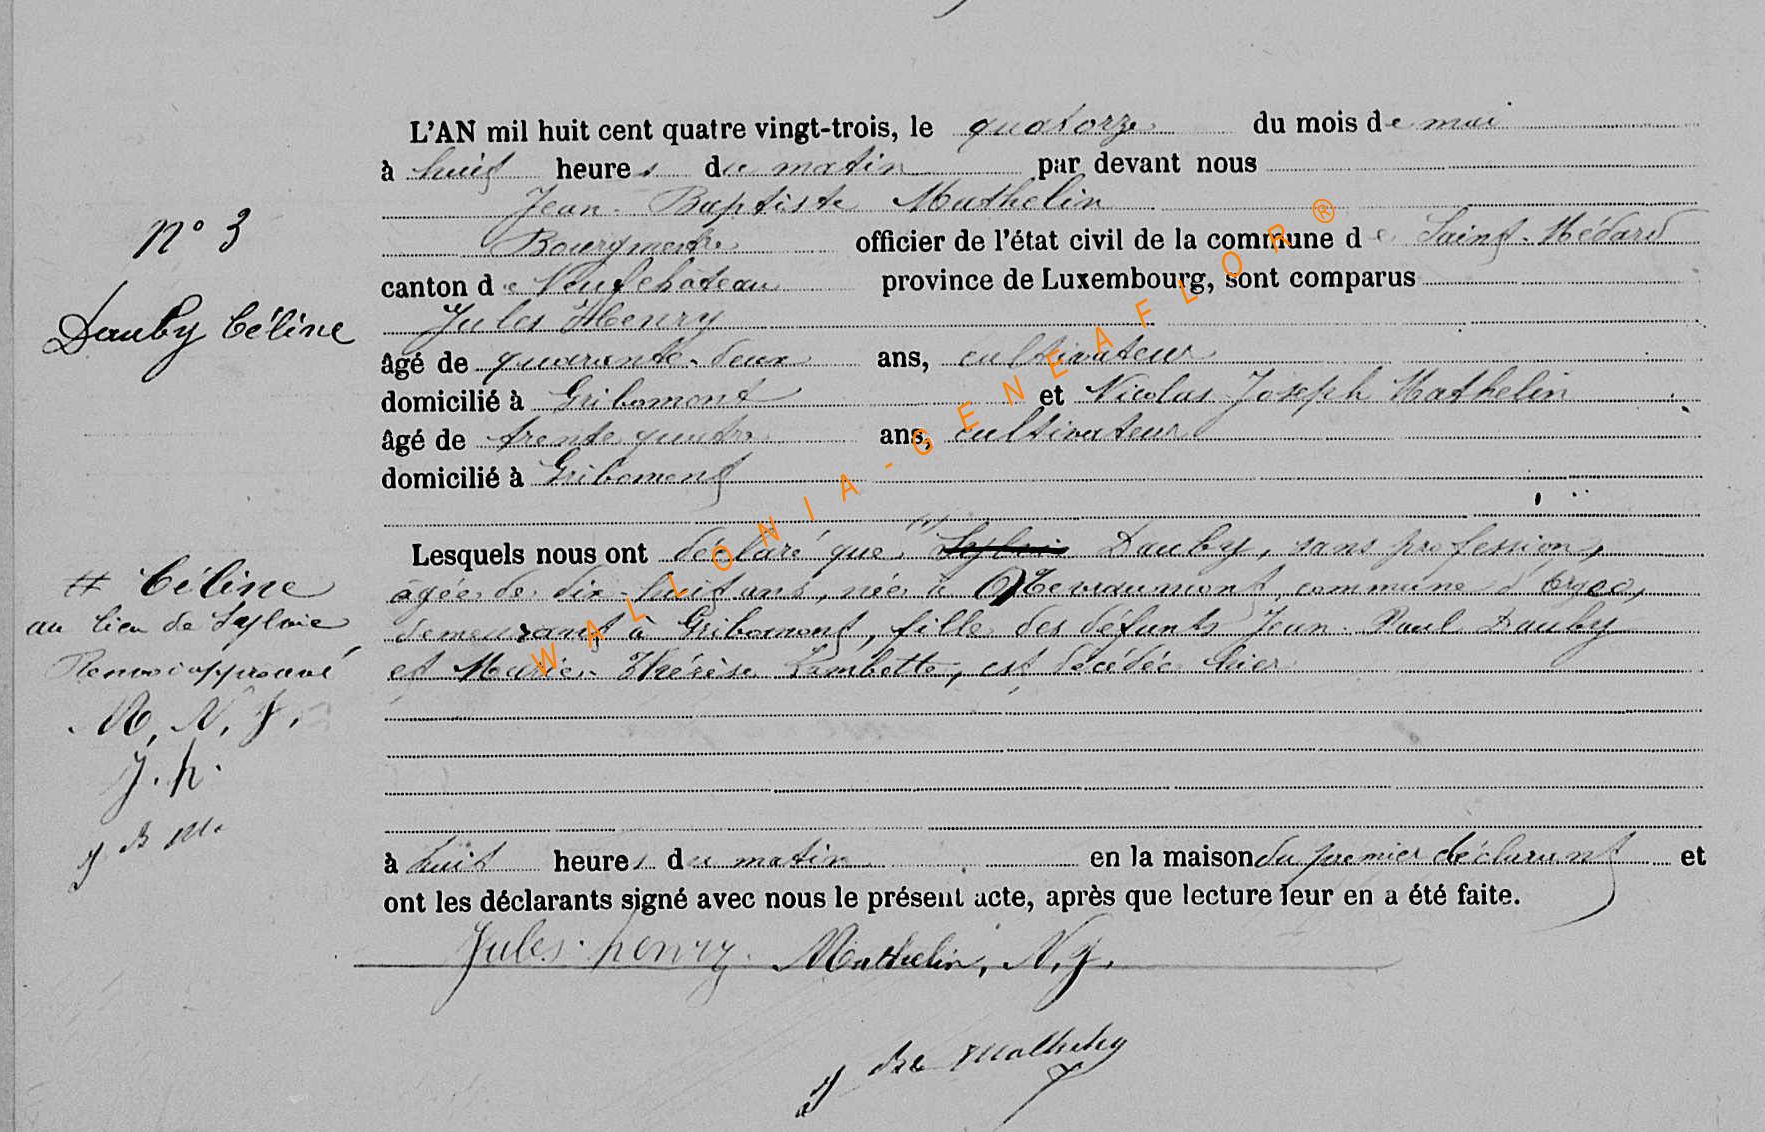 L'AN mil huit cent quatre vingt-trois, le quatorze du mois de mai
à huit heures du matin par devant nous
Jean-Baptiste Mathelin
Bourgmestre officier de l'état civil de la commune de Saint-Médard
canton de Neufchateau province de Luxembourg, sont comparus
Jules Henry
âgé de quarante-deux ans, cultivateur
domicilié à Gribomont et Nicolas Joseph Mathelin
âgé de trente quatre ans, cultivateur
domicilié à Gribomont
Lesquels nous ont déclaré que Dauby, sans profession,
agée de dix-huit ans, née à Nevraumont, commune d'Orgeo,
demeurant à Gribomont, fille des défunts Jean-Paul Dauby
et Marie-Thérèse Lambotte, est décédée hier
à huit heures du matin en la maison du premier déclarant et
ont les déclarants signé avec nous le présent acte, après que lecture leur en a été faite.
Jules henry. Mathelin, N.J.
J Bte Mathelin
N° 3
Dauby Céline
# Céline
au lieu de Sylvie
Renvoi approuvé
M, N, J.
J. h.
J B M.
WALLONIA-GENEAFLOR®